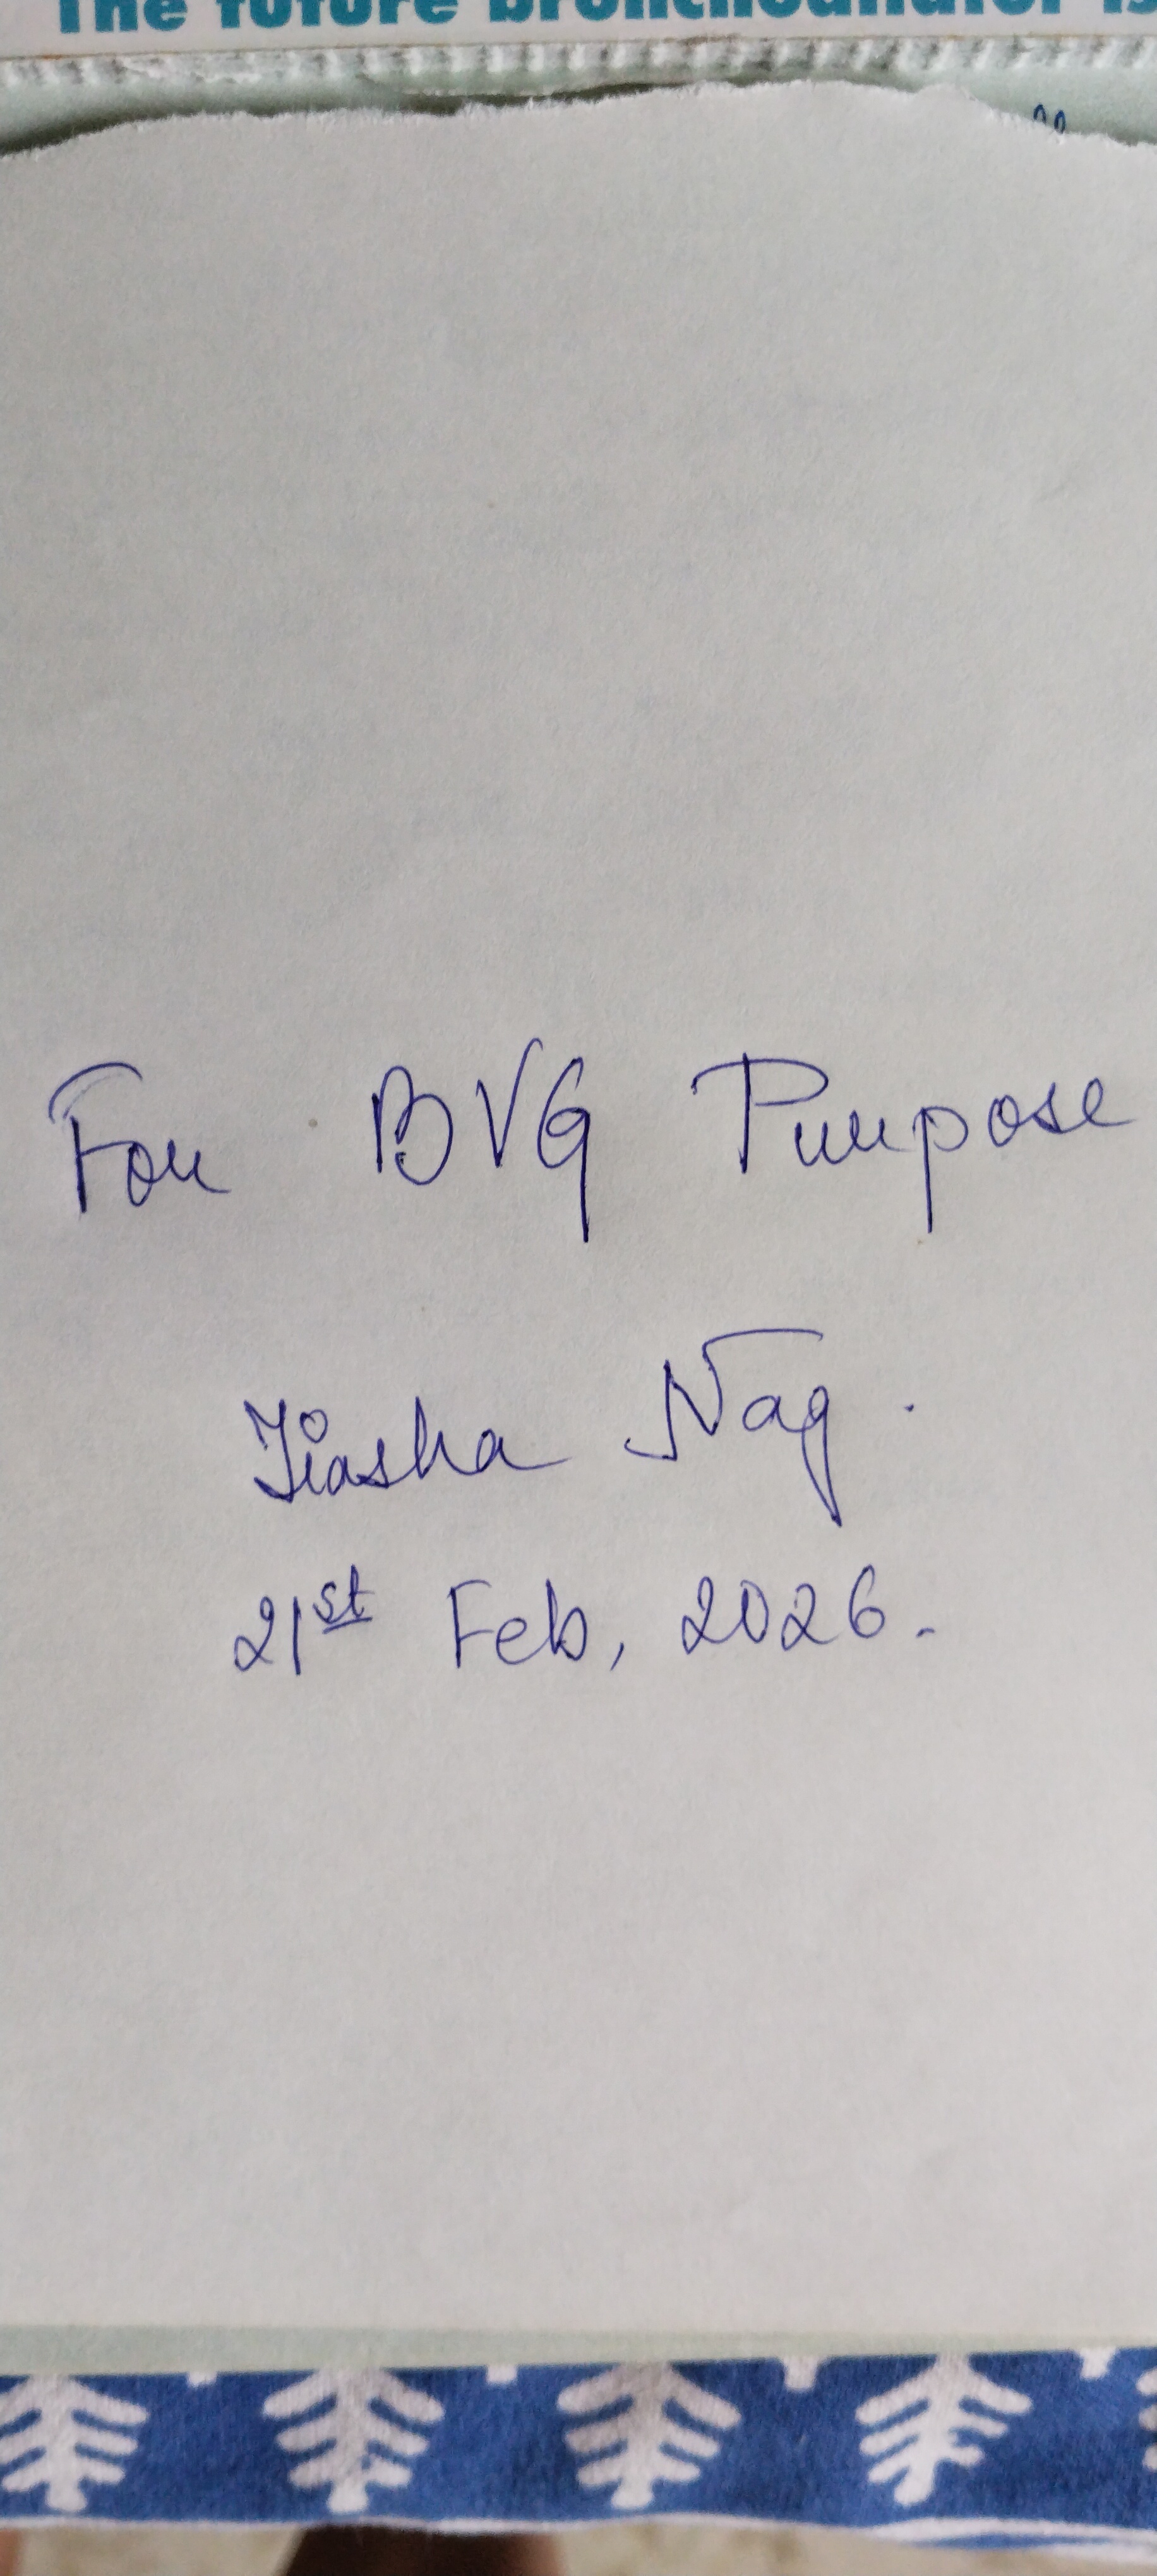 The future bronchodilator is
For BVG Purpose
Tiasha Nag.
21st Feb, 2026.